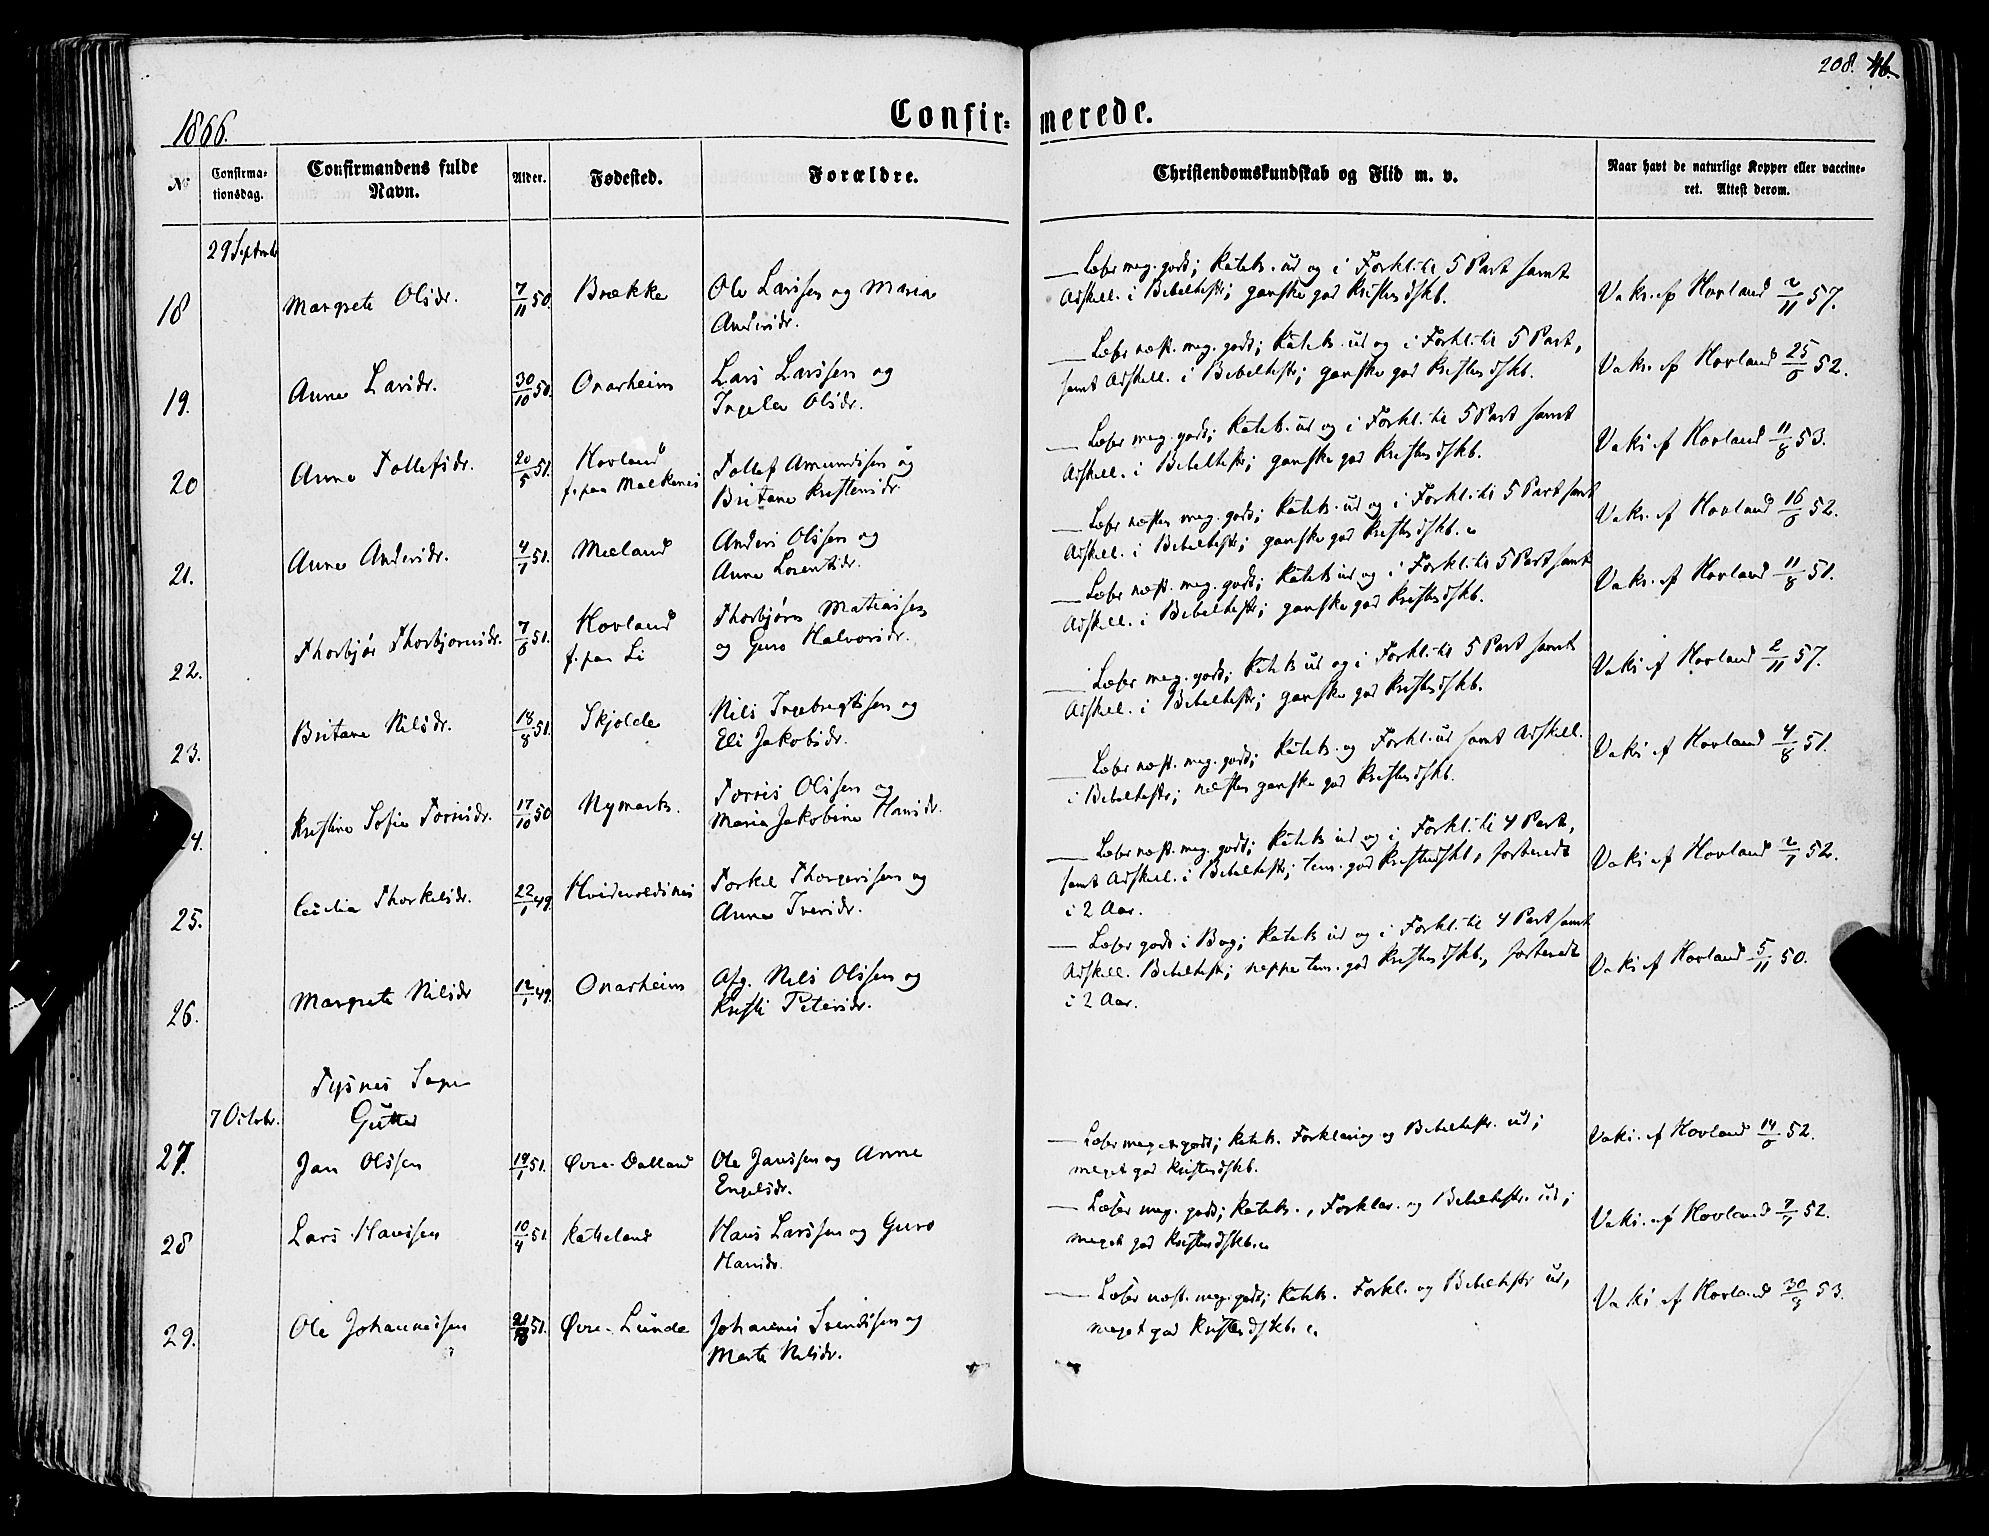 208. 46.
1866.
Confir= merede.
No
Confirma=
tionsdag.
Confirmandens fulde
Navn.
Alder.
Fødested.
Forældre.
Christendomskundskab og Flid m. v.
Naar havt de naturlige Kopper eller vaccine=
ret. Attest derom.
29 Septembr
18 Margrete Olsdr. 7/11 50. Brække Ole Larssen og Maria
Andersdr.
— Læser meg. godt; Katek. ud og i Forkl. til 5 Part samt
Adskell. i Bibelhistr; ganske god Kristendskb.
Vaks. af Hovland 2/11 57.
19. Anna Larsdr. 30/10 50. Onarheim Lars Larssen og
Ingelev Olsdr.
— Læser næst. meg. godt; Katek. ud og i Forkl. til 5 Part,
samt Adskell. i Bibelhistr; ganske god Kristendskb.
Vaks. af Hovland 25/6 52.
20 Anna Tollefsdr. 20/5 51. Hovland
f. paa Malkenes
Tollef Amundssen og
Britane Kristensdr.
— Læser meg. godt; Katek. ud og i Forkl. til 5 Part samt
Adskell. i Bibelhistr; ganske god Kristendskb.
Vaks af Hovland 11/8 53.
21. Anna Andersdr. 4/1 51. Meland Anders Olssen og
Anna Larentsdr.
— Læser næsten meg. godt; Katek. ud og i Forkl. til 5 Part samt
Adskell. i Bibelhistr; ganske god Kristendskb.
Vaks. af Hovland 16/6 52.
22. Thorbjør Thorbjørnsdr. 7/6 51. Hovland
f. paa Li
Thorbjørn Matiassen
og Guro Halvorsdr.
— Læser næst. meg. godt; Katek ud og i Forkl. til 5 Part samt
Adskell. i Bibelhistr; ganske god Kristendskb.
Vaks. af Hovland 11/8 51.
23. Britane Nilsdr. 18/8 51. Skjolde Nils Ingebrigtssen og
Eli Jakobsdr.
— Læser meg. godt; Katek ud og i Forkl. til 5 Part samt
Adskell. i Bibelhistr; ganske god Kristendskb.
Vaks af Hovland 2/11 57.
24. Kristine Sofie Torrisdr. 17/10 50 Nymark. Torris Olssen og
Maria Jakobine Hansdr.
— Læser næst. meg. godt; Katek. og Forkl. ud samt Adskell.
i Bibelhistr; næsten ganske god Kristendskb.
Vaks af Hovland 4/8 51.
25. Cecilia Thorkelsdr. 22/1 49. Hvidevoldsnes Torkel Thorgerssen og
Anna Iversdr.
— Læser næst. meg. godt; Katek ud og i Forkl. til 4 Part,
samt Adskell. i Bibelhistr; tem. god Kristendskb, forberedt
i 2 Aar.
Vaks af Hovland 2/1 52.
26. Margrete Nilsdr 12/1 49. Onarheim Afg. Nils Olssen og
Kristi Petersdr.
— Læser godt i Bog; Katek ud og i Forkl. til 4 Part samt
Adskell. Bibelhistr; neppe tem. god Kristendskb, forberedt
i 2 Aar.
Vaks af Hovland 5/11 50.
Tysnes Sogn
7 Octobr. Gutter
27. Jan Olssen 19/1 51. Øvre-Dalland Ole Janssen og Anne
Engelsdr.
— Læser meget godt; Katek. Forklaring og Bibelhistr. ud;
meget god Kristendskb.
Vaks. af Hovland 14/6 52.
28 Lars Hanssen 10/4 51 Katteland Hans Larssen og Guro
Hansdr.
— Læser meg. godt; Katek., Forklar. og Bibelhistr. ud;
meget god Kristendskb.
Vaks. af Hovland 7/1 52.
29. Ole Johannessen 51. Øvre-Lunde Johannes Svendssen og
Marta Nilsdr.
— Læser næst. meg. godt; Katek. Forkl. og Bibelhistr ud,
meget god Kristendskb.
Vaks af Hovland 30/9 53.